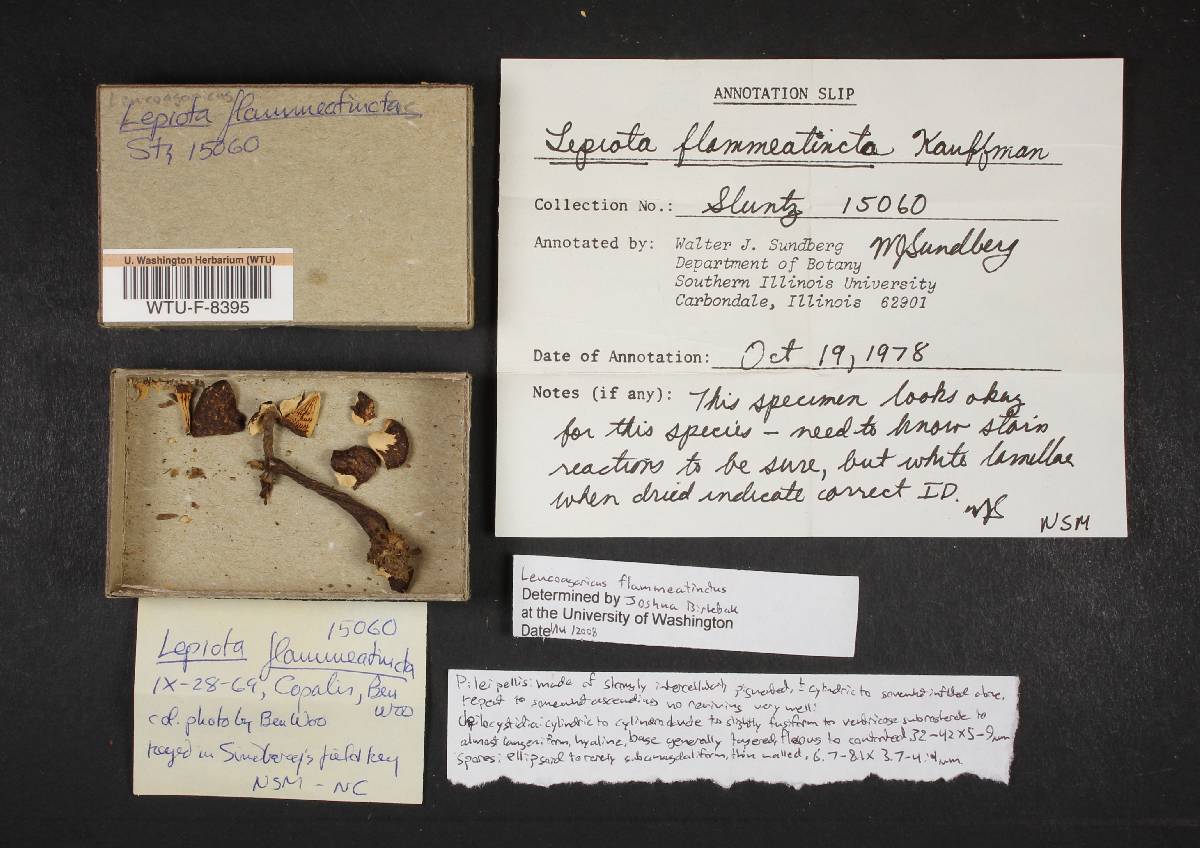 Leucoagaricus
Lepiota flammeatinctas
Stz 15060
U. Washington Herbarium (WTU)
WTU-F-8395
ANNOTATION SLIP
Lepiota flammeatincta Kauffman
Collection No.: Sluntz 15060
Annotated by: Walter J. Sundberg WJSundberg
Department of Botany
Southern Illinois University
Carbondale, Illinois 62901
Date of Annotation: Oct 19, 1978
Notes (if any): This specimen looks okay
for this species – need to know stain
reactions to be sure, but white lamellae
when dried indicate correct ID.
WJS
NSM
Leucoagaricus flammeatinctus
Determined by Joshua Birkebak
at the University of Washington
Date /2008
15060
Lepiota flammeatincta
IX-28-69, Copalis, Ben
Woo
col. photo by Ben Woo
keyed in Sundberg's field key
NSM - NC
Pileipellis: made of strongly intercellularly pigmented, ± cylindric to somewhat inflated
repent to somewhat ascending no reviving very well:
cheilocystidia: cylindric to cylindroclavate to slightly fusiform to ventricose subrostrate to
almost lageniform, hyaline, base generally tapered, flexuous to contorted 32-42 x 5-9 µm
spores: ellipsoid to rarely subamygdaliform, thin walled, 6.7-8.1 x 3.7-4. µm